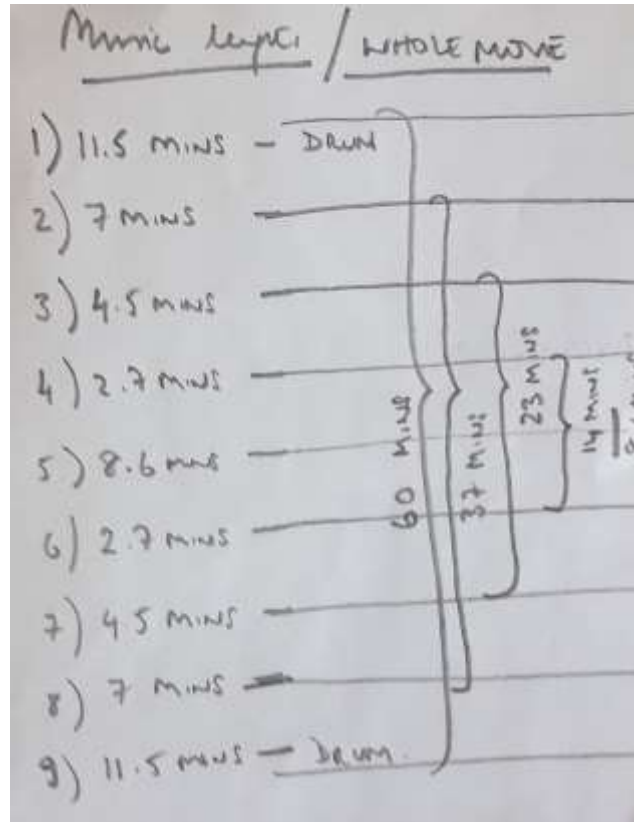 Music / WHOLE MOVE
1) 11.5 MINS – DRUM
2) 7 MINS
3) 4.5 MINS
4) 2.7 MINS
5) 8.6 MINS
6) 2.7 MINS
7) 4.5 MINS
8) 7 MINS
9) 11.5 MINS – DRUM
60 MINS
37 MINS
23 MINS
14 MINS